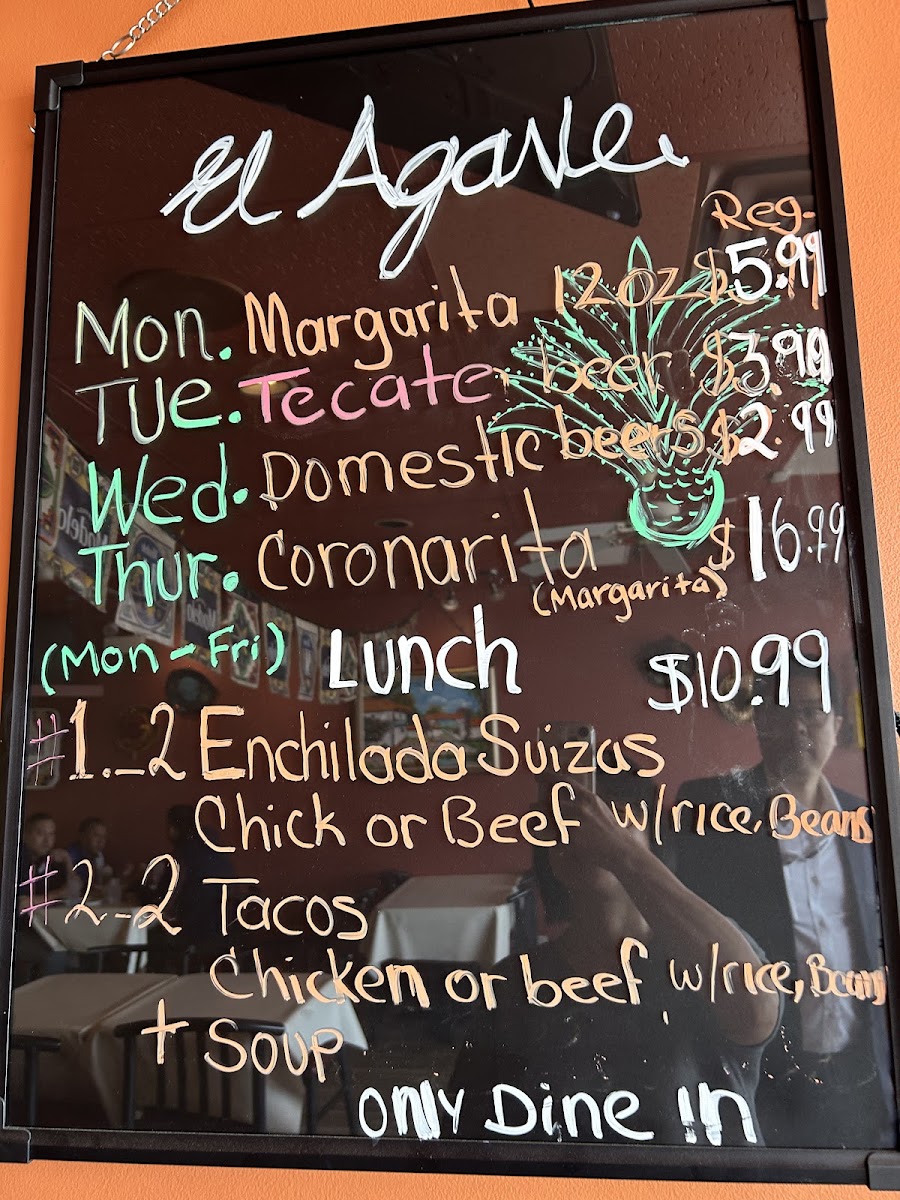 El Agave.
Reg.
Mon. Margarita 12oz $5.99
TUE. Tecate beer $3.99
Wed. Domestic beers $2.99
Thur. Coronarita $16.99
(Margarita)
(Mon - Fri) Lunch $10.99
#1._2 Enchilada Suizas
Chick or Beef w/rice, Beans
#2_2 Tacos
Chicken or beef w/rice, Beans
+ Soup
Only Dine In